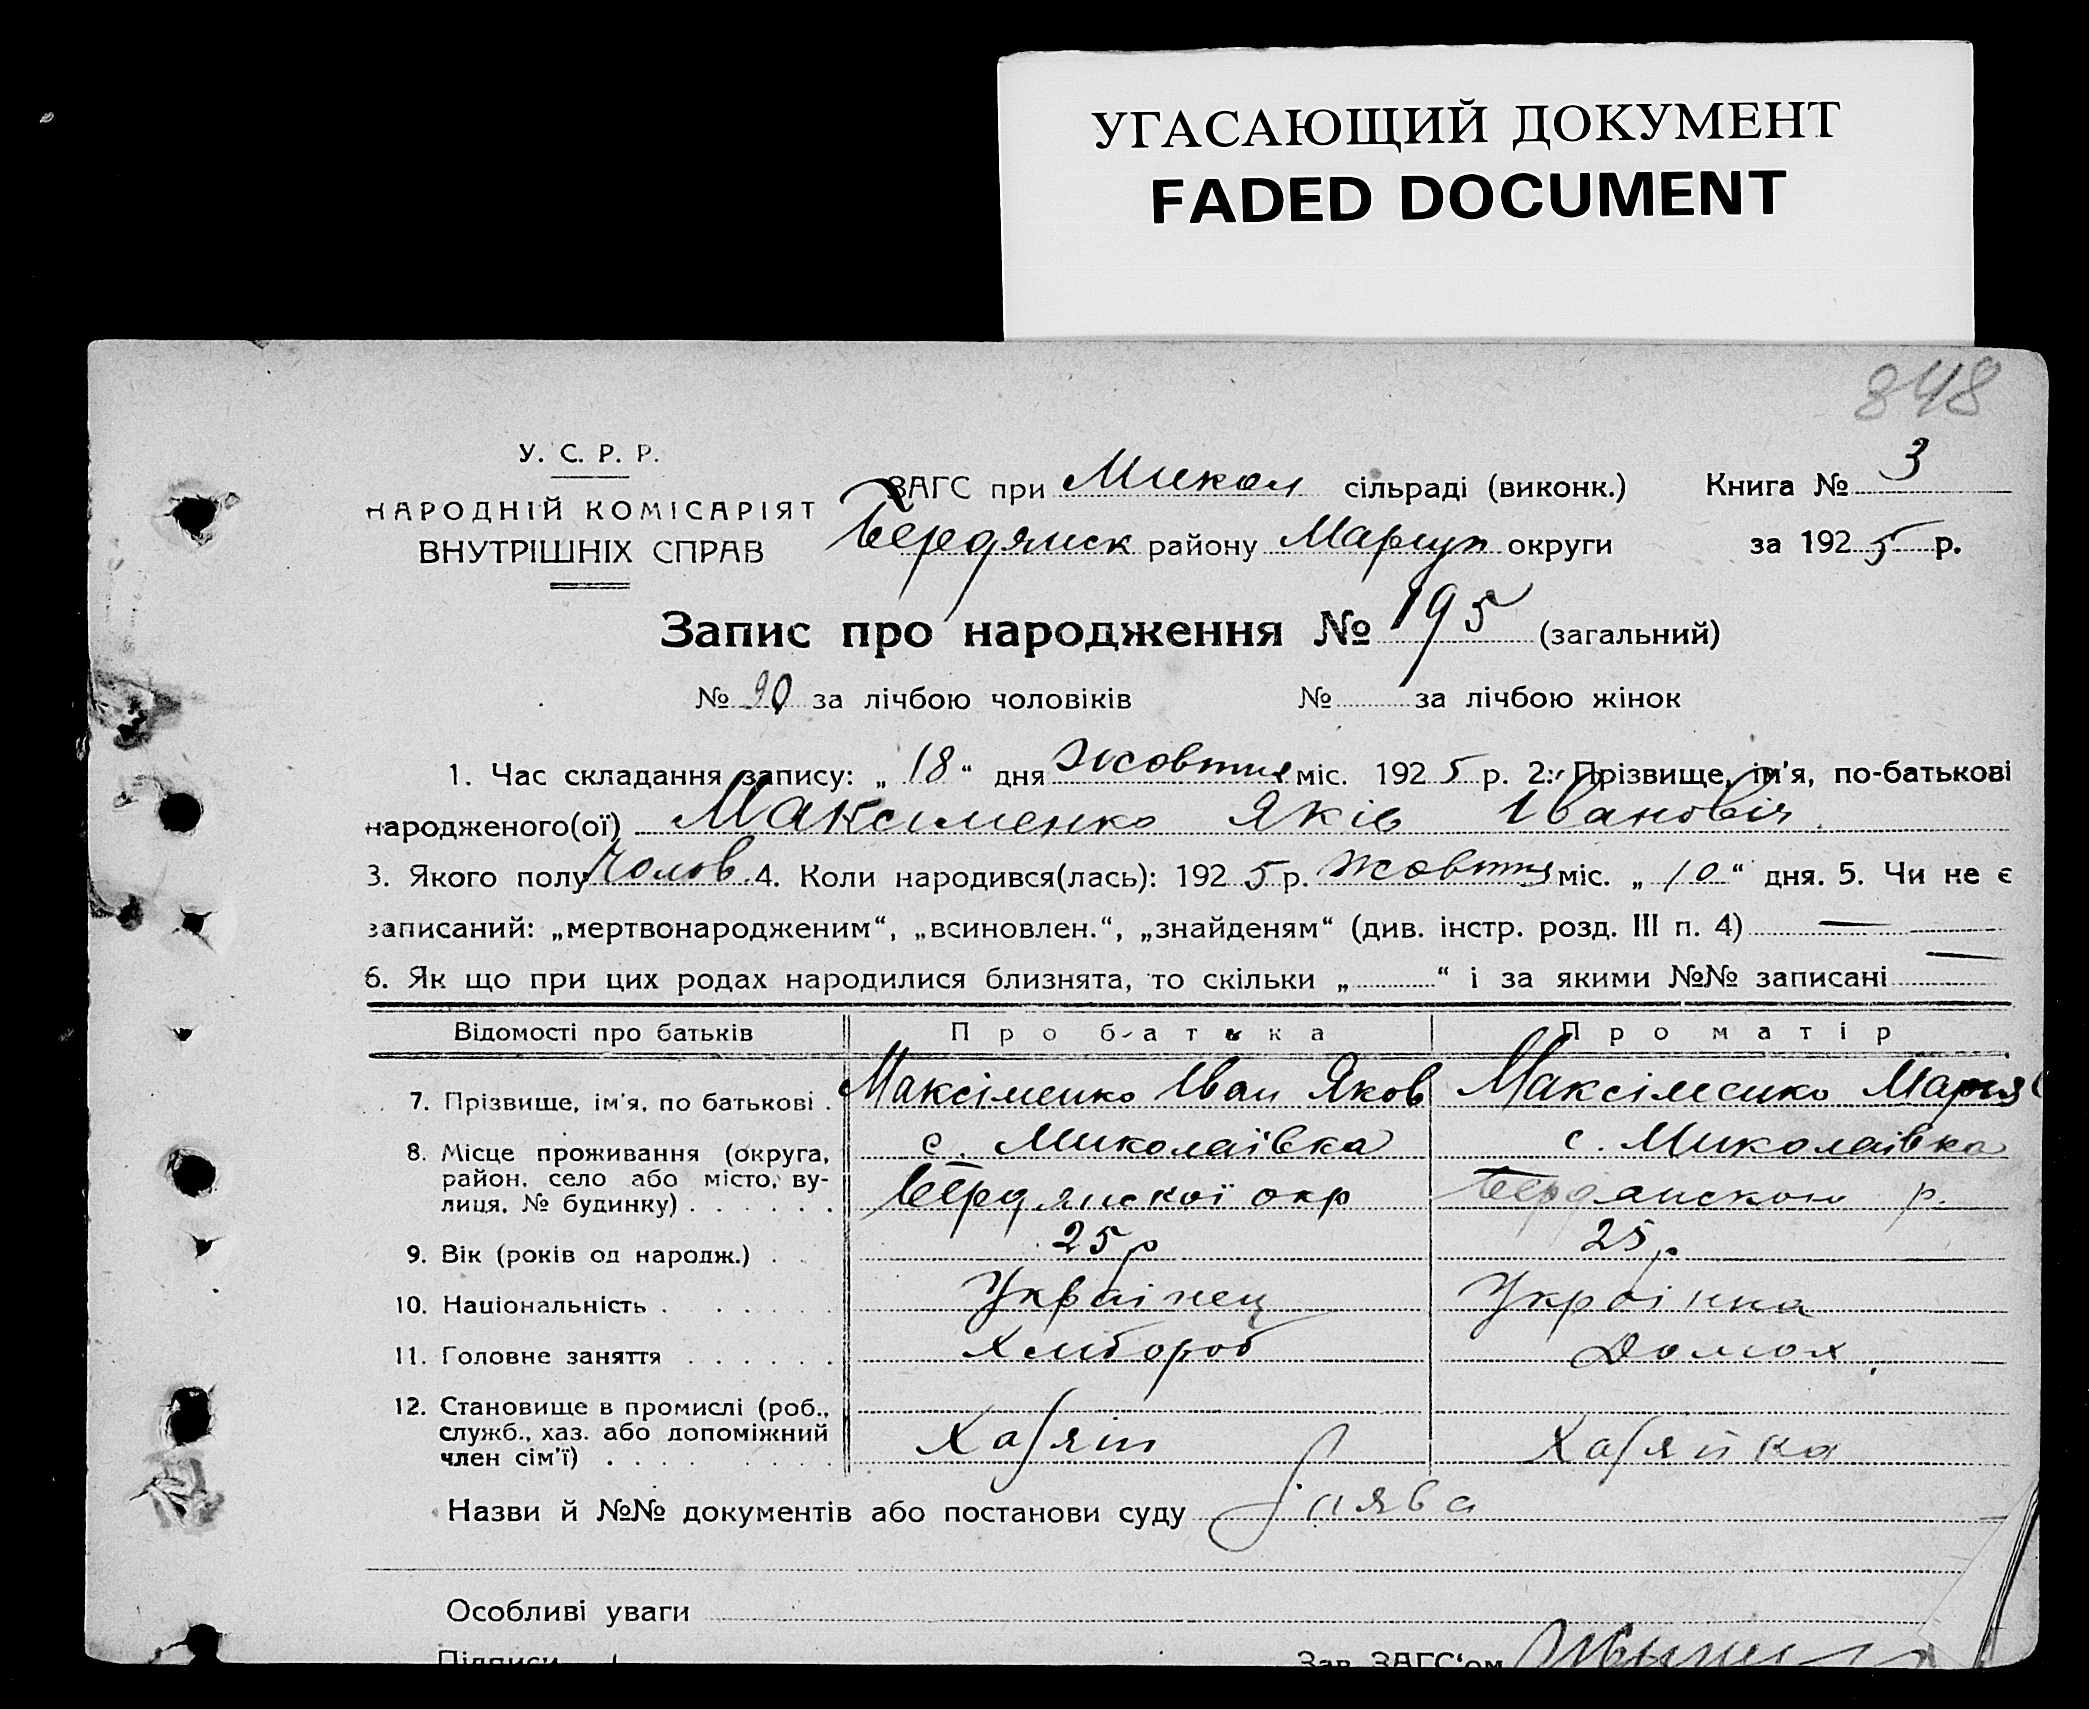 УГАСАЮЩИЙ ДОКУМЕНТ
FADED DOCUMENT
848
У. С. Р. Р.
НАРОДНІЙ КОМІСАРІЯТ
ВНУТРІШНІХ СПРАВ
ЗАГС при Микол сільраді (виконк.) Книга № 3
Бердянск району Маріуп округи за 1925 р.
Запис про народження № 195 (загальний)
№ 90 за лічбою чоловіків № за лічбою жінок
1. Час складання запису: „18“ дня Жовтня міс. 1925 р. 2. Прізвище, ім'я, по-батькові
народженого(ої) Максименко Яків Івановіч
3. Якого полу Чолов. 4. Коли народився(лась): 1925 р. Жовтня міс. „10“ дня. 5. Чи не є
записаний: „мертвонародженим“, „всиновлен.“, „знайденям“ (див. інстр. розд. III п. 4) —
6. Як що при цих родах народилися близнята, то скільки „ “ і за якими №№ записані —
Відомості про батьків Про батька Про матір
7. Прізвище, ім'я, по батькові . Максіменко Іван Яков Максіменко Мария
8. Місце проживання (округа, район, село або місто, вулиця, № будинку) . . . . . . с. Миколаївка Бердянскої окр с. Миколаївка Бердянскою р.
9. Вік (років од народж.) . . 25 р 25 р.
10. Національність . . . . . Українец Українка
11. Головне заняття . . . . . . Хлібороб Домох.
12. Становище в промислі (роб., служб., хаз. або допоміжний член сім'ї) . . . . . . . . Хазяін Хазяйка
Назви й №№ документів або постанови суду Заява
Особливі уваги
Підписи Зав. ЗАГС'ом